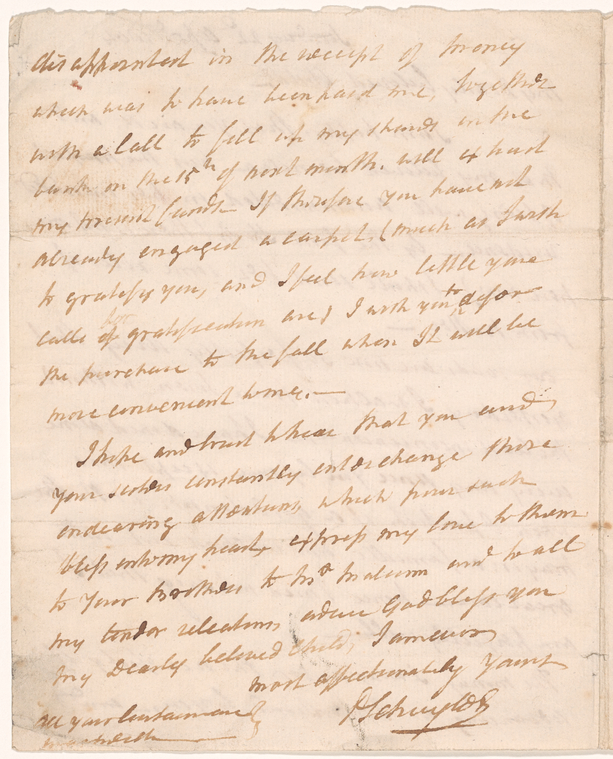 disappointed in the receipt of money
which was to have been paid me, together
with a Call to fill up my shares in the
bank on the 15th of next month. will exhaust
my present funds If therefore you have not
already engaged a carpet, (much as I wish
to gratify you, and I feel how little your
calls for gratification are) I wish you to defer
the purchase to the fall when It will be
more convenient to me.—
I hope and trust to hear that you and
your sisters constantly interchange those
endearing attentions which pour such
bliss into my heart, express my love to them
to Your Brother to Mrs Malcom and to all
my tender relations adieu God bless you
my Dearly beloved child, I am ever
most affectionately Yours
PSchuyler